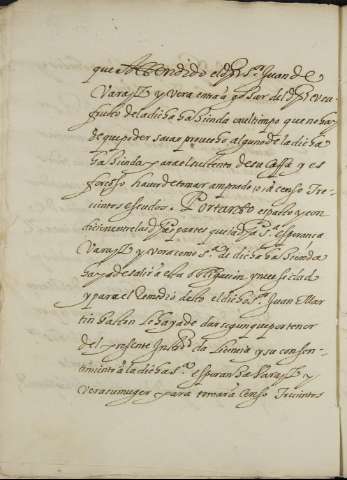 que Attendido el dho Sr. Juan de
Varaiz y Vera entra á gosar del dho usu-
fructo de la dicha hasienda en el tiempo que no hay
de que poder sacar prouecho alguno de la dicha
hasienda para el sustento de su Cassa y es
forçoso hauer de tomar amprado ó á censo Tre-
cientos escudos. Portanto es pacto y con
dicion entre las dhas partes que la dha Sra. esperança
Varaiz y Vera como Sra. de dicha hasienda
haya de salir á la obligacion y necessidad
y para el Remedio desto el dicho Sr. Juan Mar-
tin se haya de dar segun que por tenor
del presente Instrto. da licencia y su consen-
timiento a la dicha Sra. esperanza Varaiz y
Vera su muger para tomar á Censo Trecientos